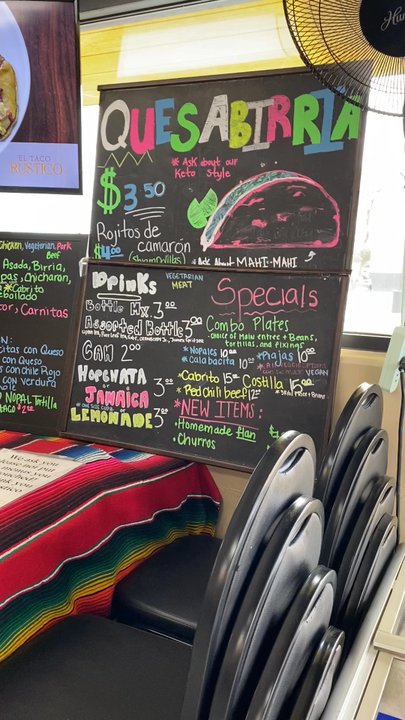 EL TACO
RUSTICO
Hun
QUESABIRRIA
* Ask about our
Keto Style
$3.50
Rojitos de
camarón
$4.00
* Ask About MAHI-MAHI
Chicken, Vegetarian, Pork
Beef
Asada, Birria,
Chicharon,
* Cabrito
Carnitas
con Queso
con Queso
con chile Rojo
con verdura
NOPAL Tortilla
TACO $2.50
DrinKs
Bottle Mx. 3.00
Assorted Bottle 3.00
Can 2.00
HORCHATA
or
JAMAICA
LEMONADE
3.00
3.00
VEGETARIAN
MEAT
Specials
Combo Plates
choice of Main entree + Beans,
tortillas, and Fixings
* Nopales 10.00
* Calabacita 10.00
* Rajas 10.00
VEGAN
* Cabrito 15.00
Costilla 15.00
* Red Chili beef 12.00
* NEW ITEMS:
* Homemade flan
* Churros
We ask you